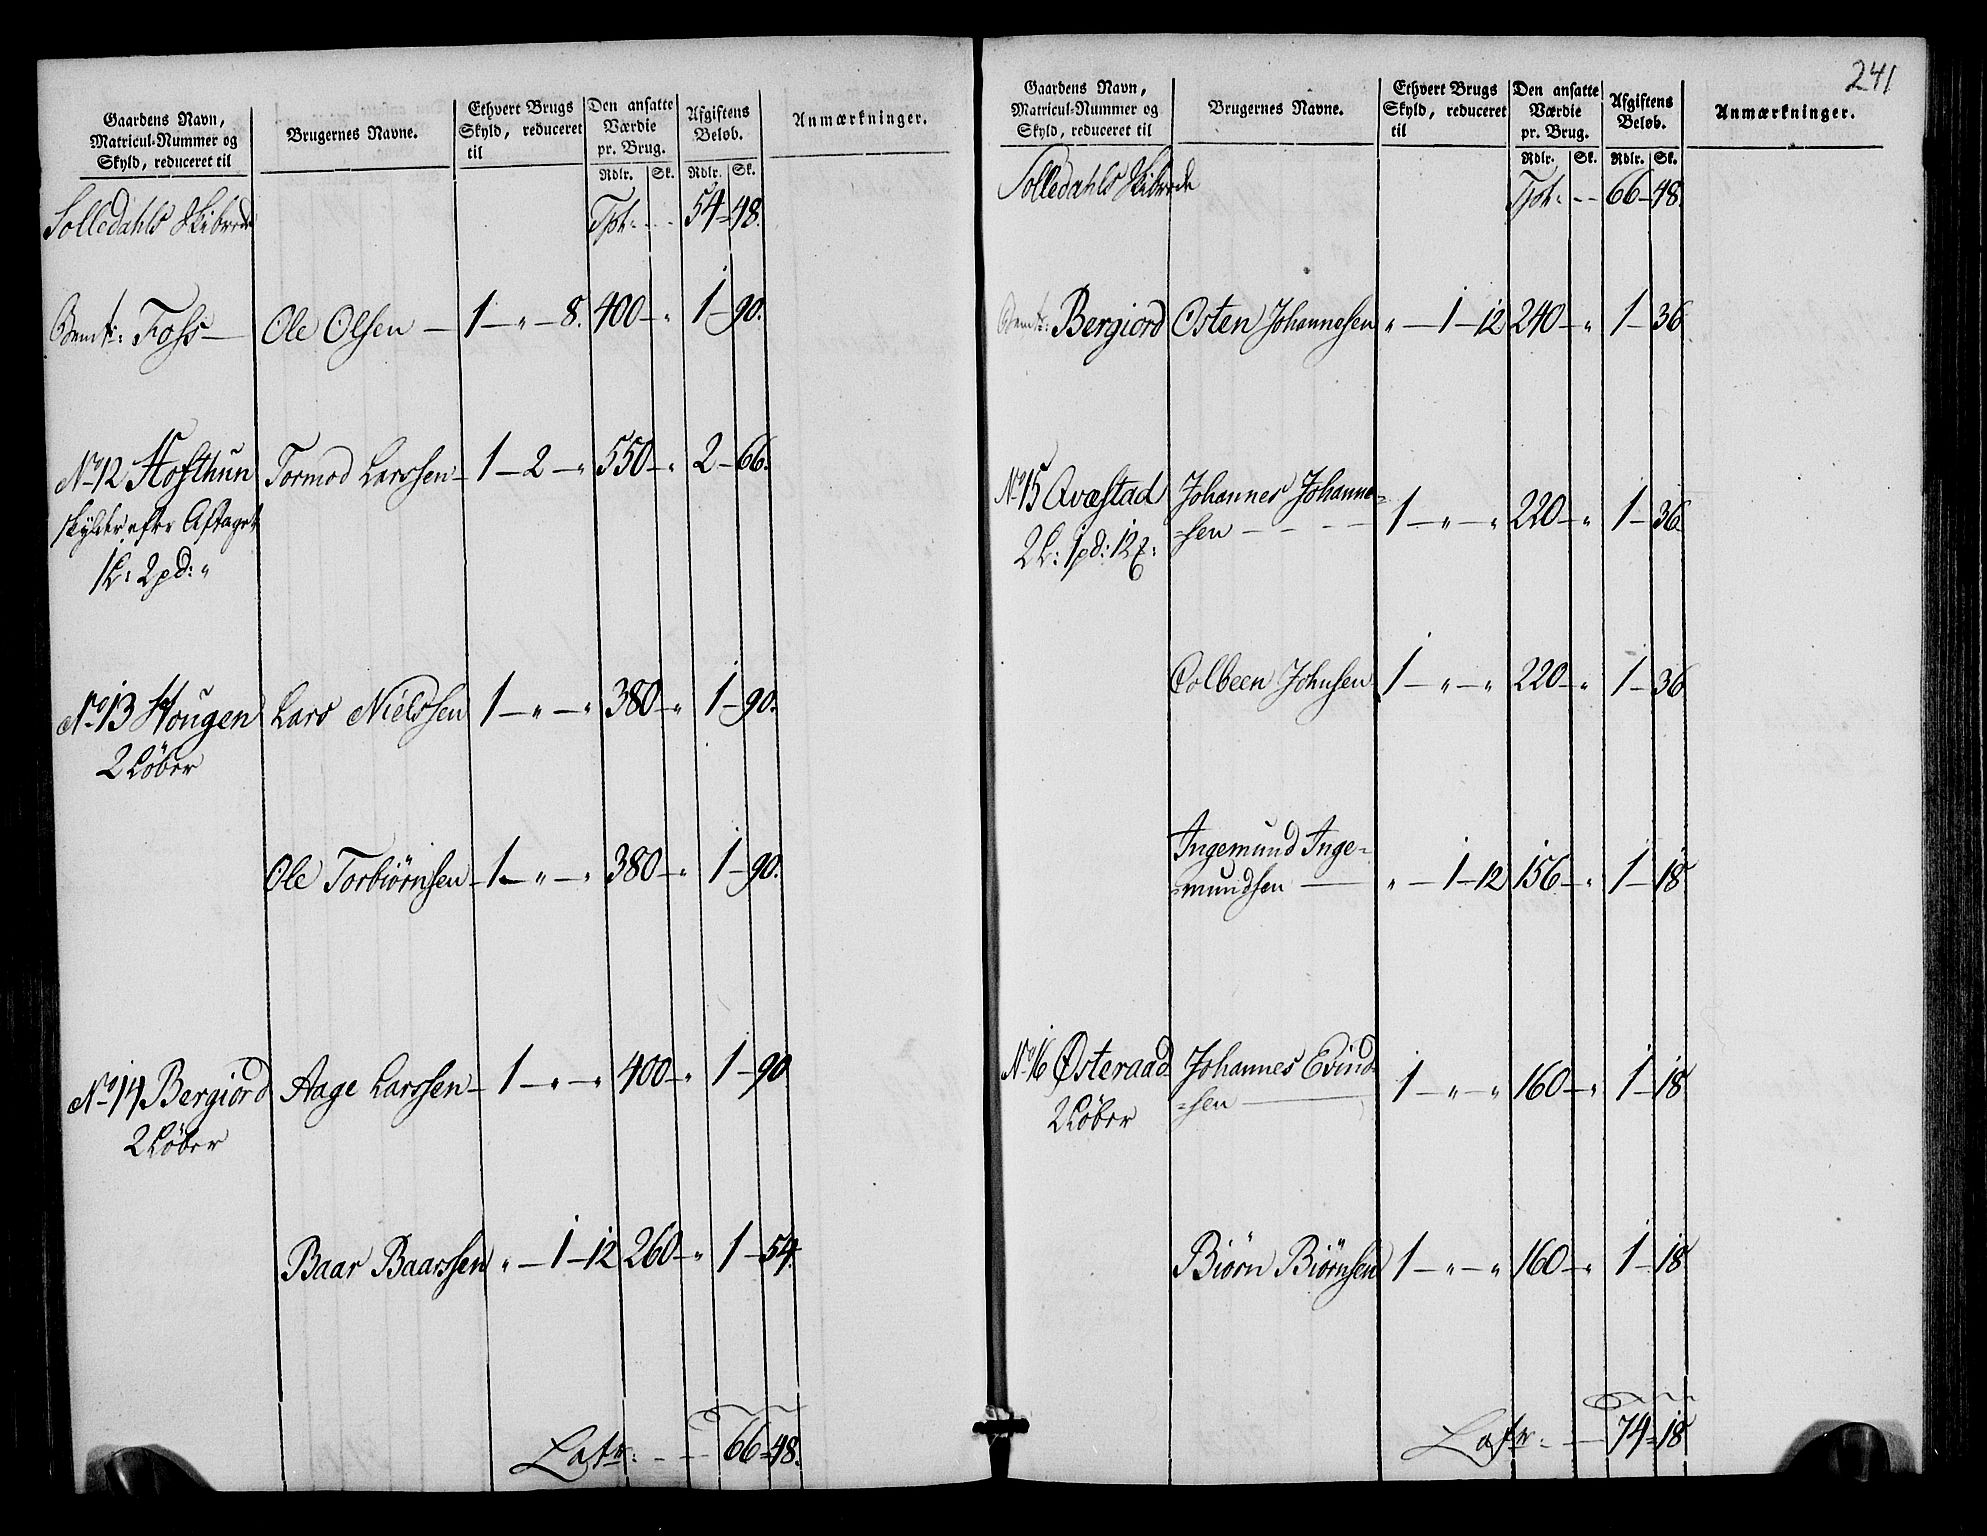 Gaardens Navn,
Matricul-Nummer og
Skyld, reduceret til
Brugernes Navne.
Ethvert Brugs
Skyld, reduceret
til
Den ansatte
Værdie
pr. Brug.
Rdlr. Sk.
Afgiftens
Beløb.
Rdlr. Sk.
Anmærkninger.
Solledahls Skibrede Tpt: - - 54 = 48.
Foss — Ole Olsen — 1 — " — 8. 400 — " 1 — 90.
No 12 Hofthun Tormod Larssen — 1 — 2 — " 550 — " 2 — 66.
skylder efter Aftaget
1 L: 2 pd: "
No 13 Hougen Lars Nielssen 1 — " — " 380 — " 1 — 90.
2 Løber
Ole Torbiørnsen — 1 — " — " 380 — " 1 — 90.
No 14 Bergiord Aage Larssen — 1 — " — " 400 — " 1 — 90
2 Løber
Baar Baarssen " — 1 — 12 260 — " 1 — 54.
Latr: - — 66 = 48.
241
Gaardens Navn,
Matricul-Nummer og
Skyld, reduceret til
Brugernes Navne.
Ethvert Brugs
Skyld, reduceret
til
Den ansatte
Værdie
pr. Brug.
Rdlr. Sk.
Afgiftens
Beløb.
Rdlr. Sk.
Anmærkninger.
Solledahls Skibrede Tpt: - - 66 — 48.
Bergiord Osten Johannesen " — 1 — 12 240 — " 1 — 36.
No 15 Qvæstad Johannes Johanne=
=sen — — — 1 — " — " 220 — " 1 — 36.
2 L: 1 pd: 12
Colbeen Johnsen 1 — " — " 220 — " 1 — 36
Ingemund Inge=
=mundsen — " — 1 — 12 156 — " 1 — 18
No 16 Østeraad Johannes Evind=
=sen — 1 — " — " 160 — " 1 — 18
2 Løber
Biørn Biørnsen 1 — " — " 160 — " 1 — 18
Latr: — 74 = 18